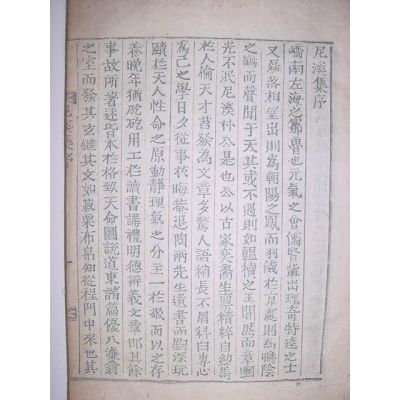 尼溪集序
嶠南左海之鄒魯也元氣之會儒賢蔚出瑰奇特達之士
又磊落相望出則爲朝陽之鳳而羽儀於京處則爲鳴陰
之鶴而聲聞于天其或不遇則如韞櫝之玉闇然而章幽
光不泯尼溪朴公是也公以古家英裔生稟精粹自幼篤
於人倫天才英發爲文章多驚人語稍長不屑科臼專心
爲己之學日夕從事於晦菴退陶兩先生遺書而鉤深玩
賾於天人性命之原動靜理氣之分主一於敬而以之存
養晚年猶矻矻用工於讀書講禮明德辨義文章卽其餘
事故所著述皆本於格致天命圖說道東諸篇優入濂翁
之室而發其玄鍵其文如菽粟布帛知從程門中來也其